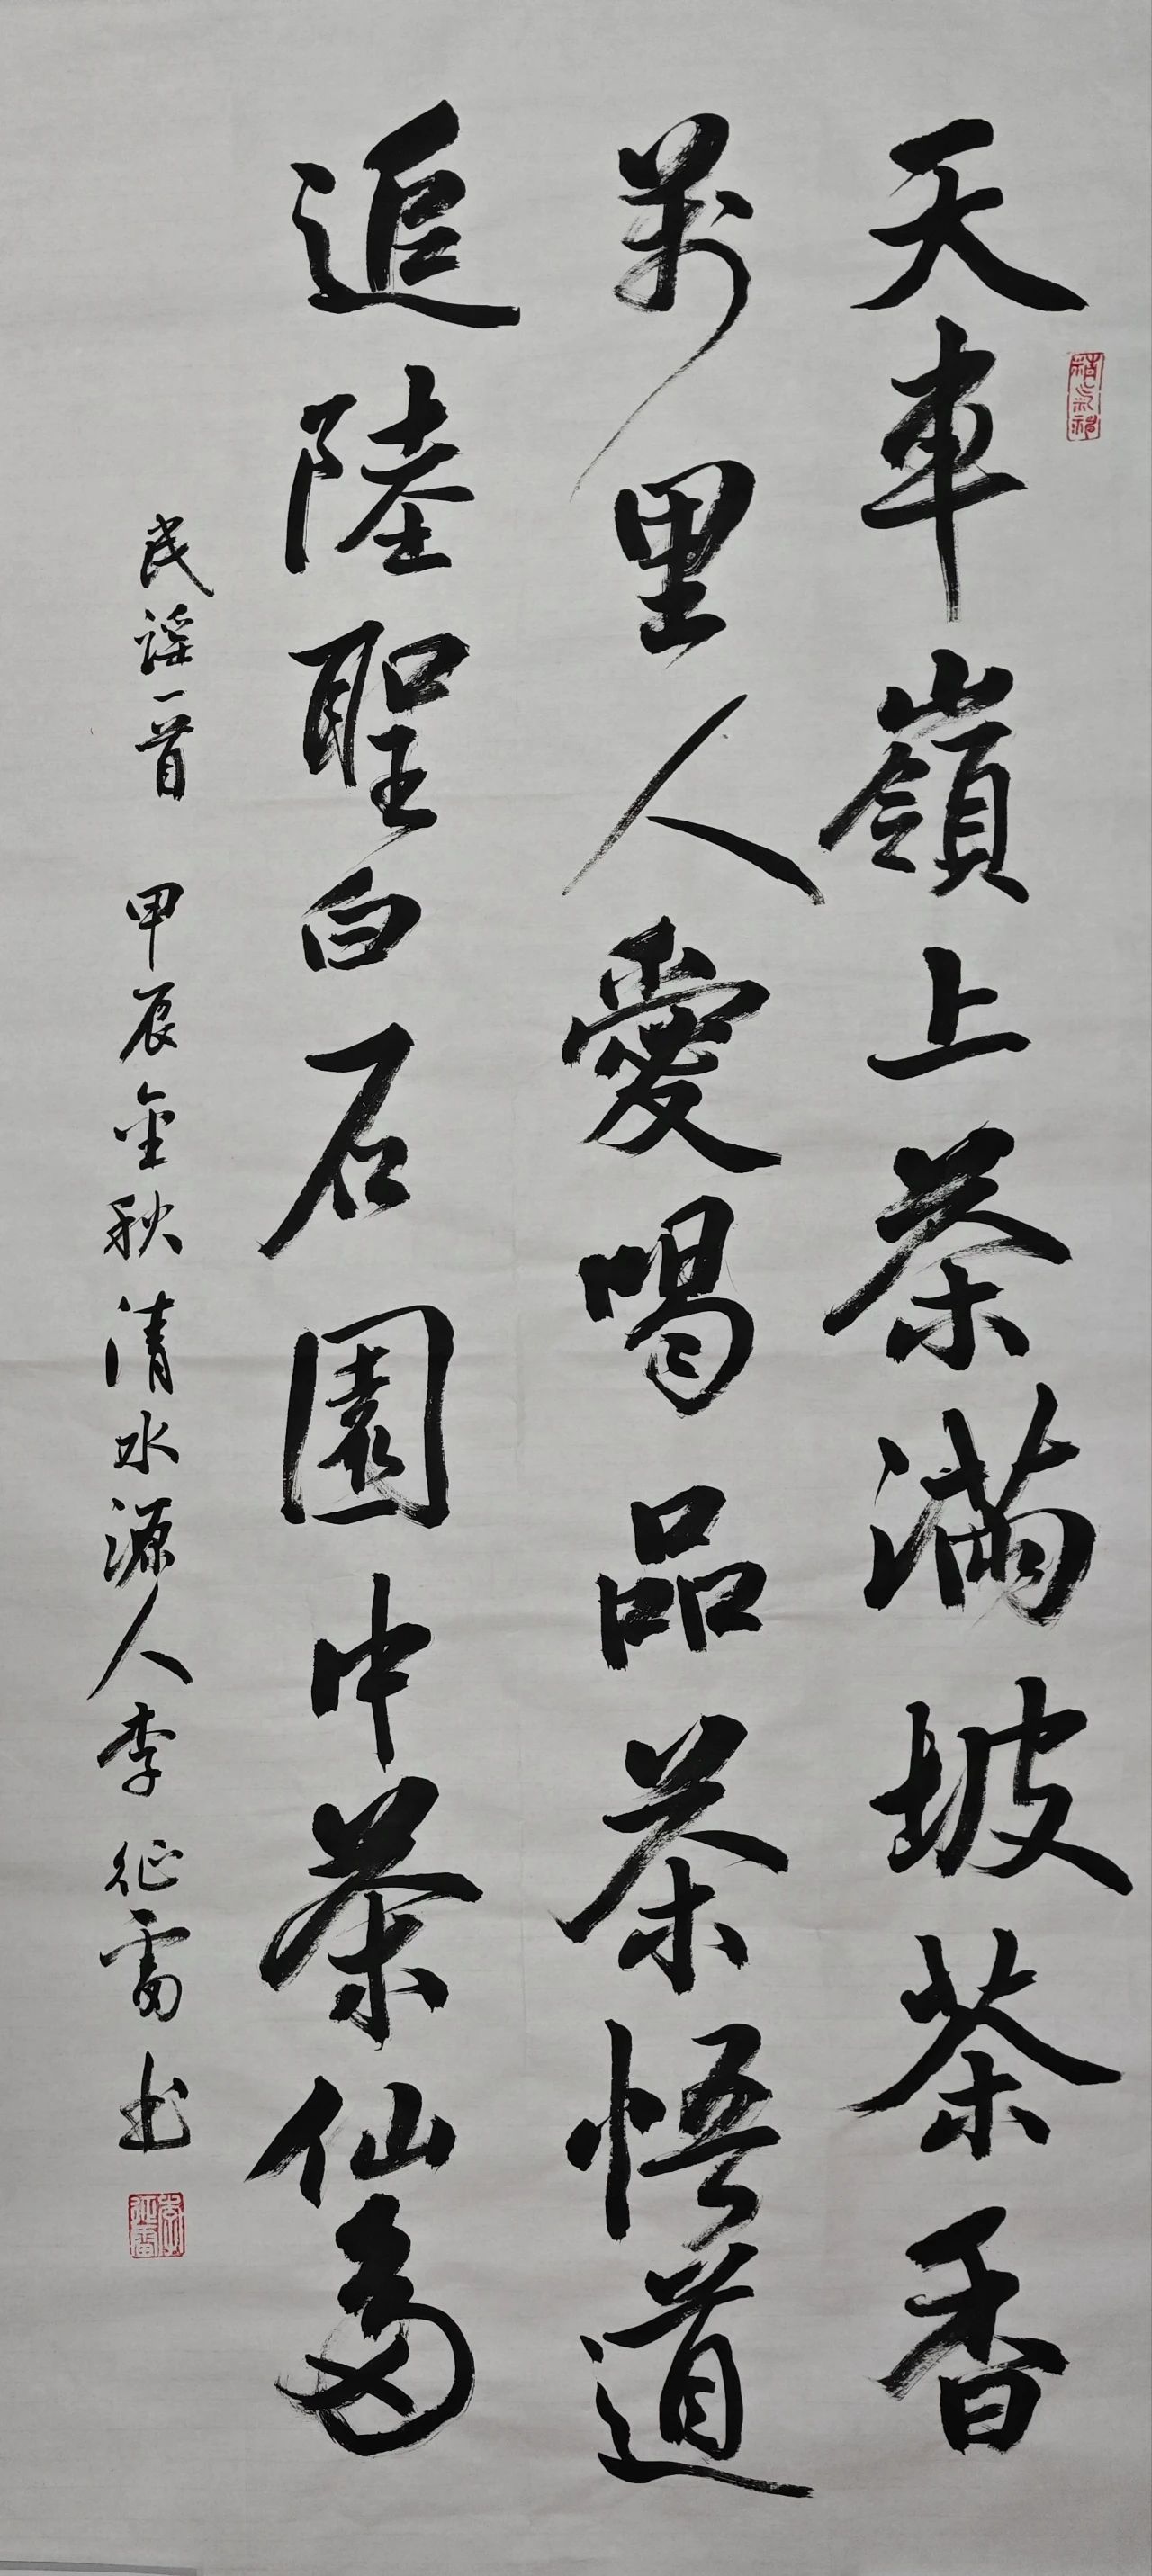 天車嶺上茶滿坡茶香
萬里人愛喝品茶悟道
追陸聖白石園中茶仙多
民谣一首 甲辰金秋清水源人李征雷书